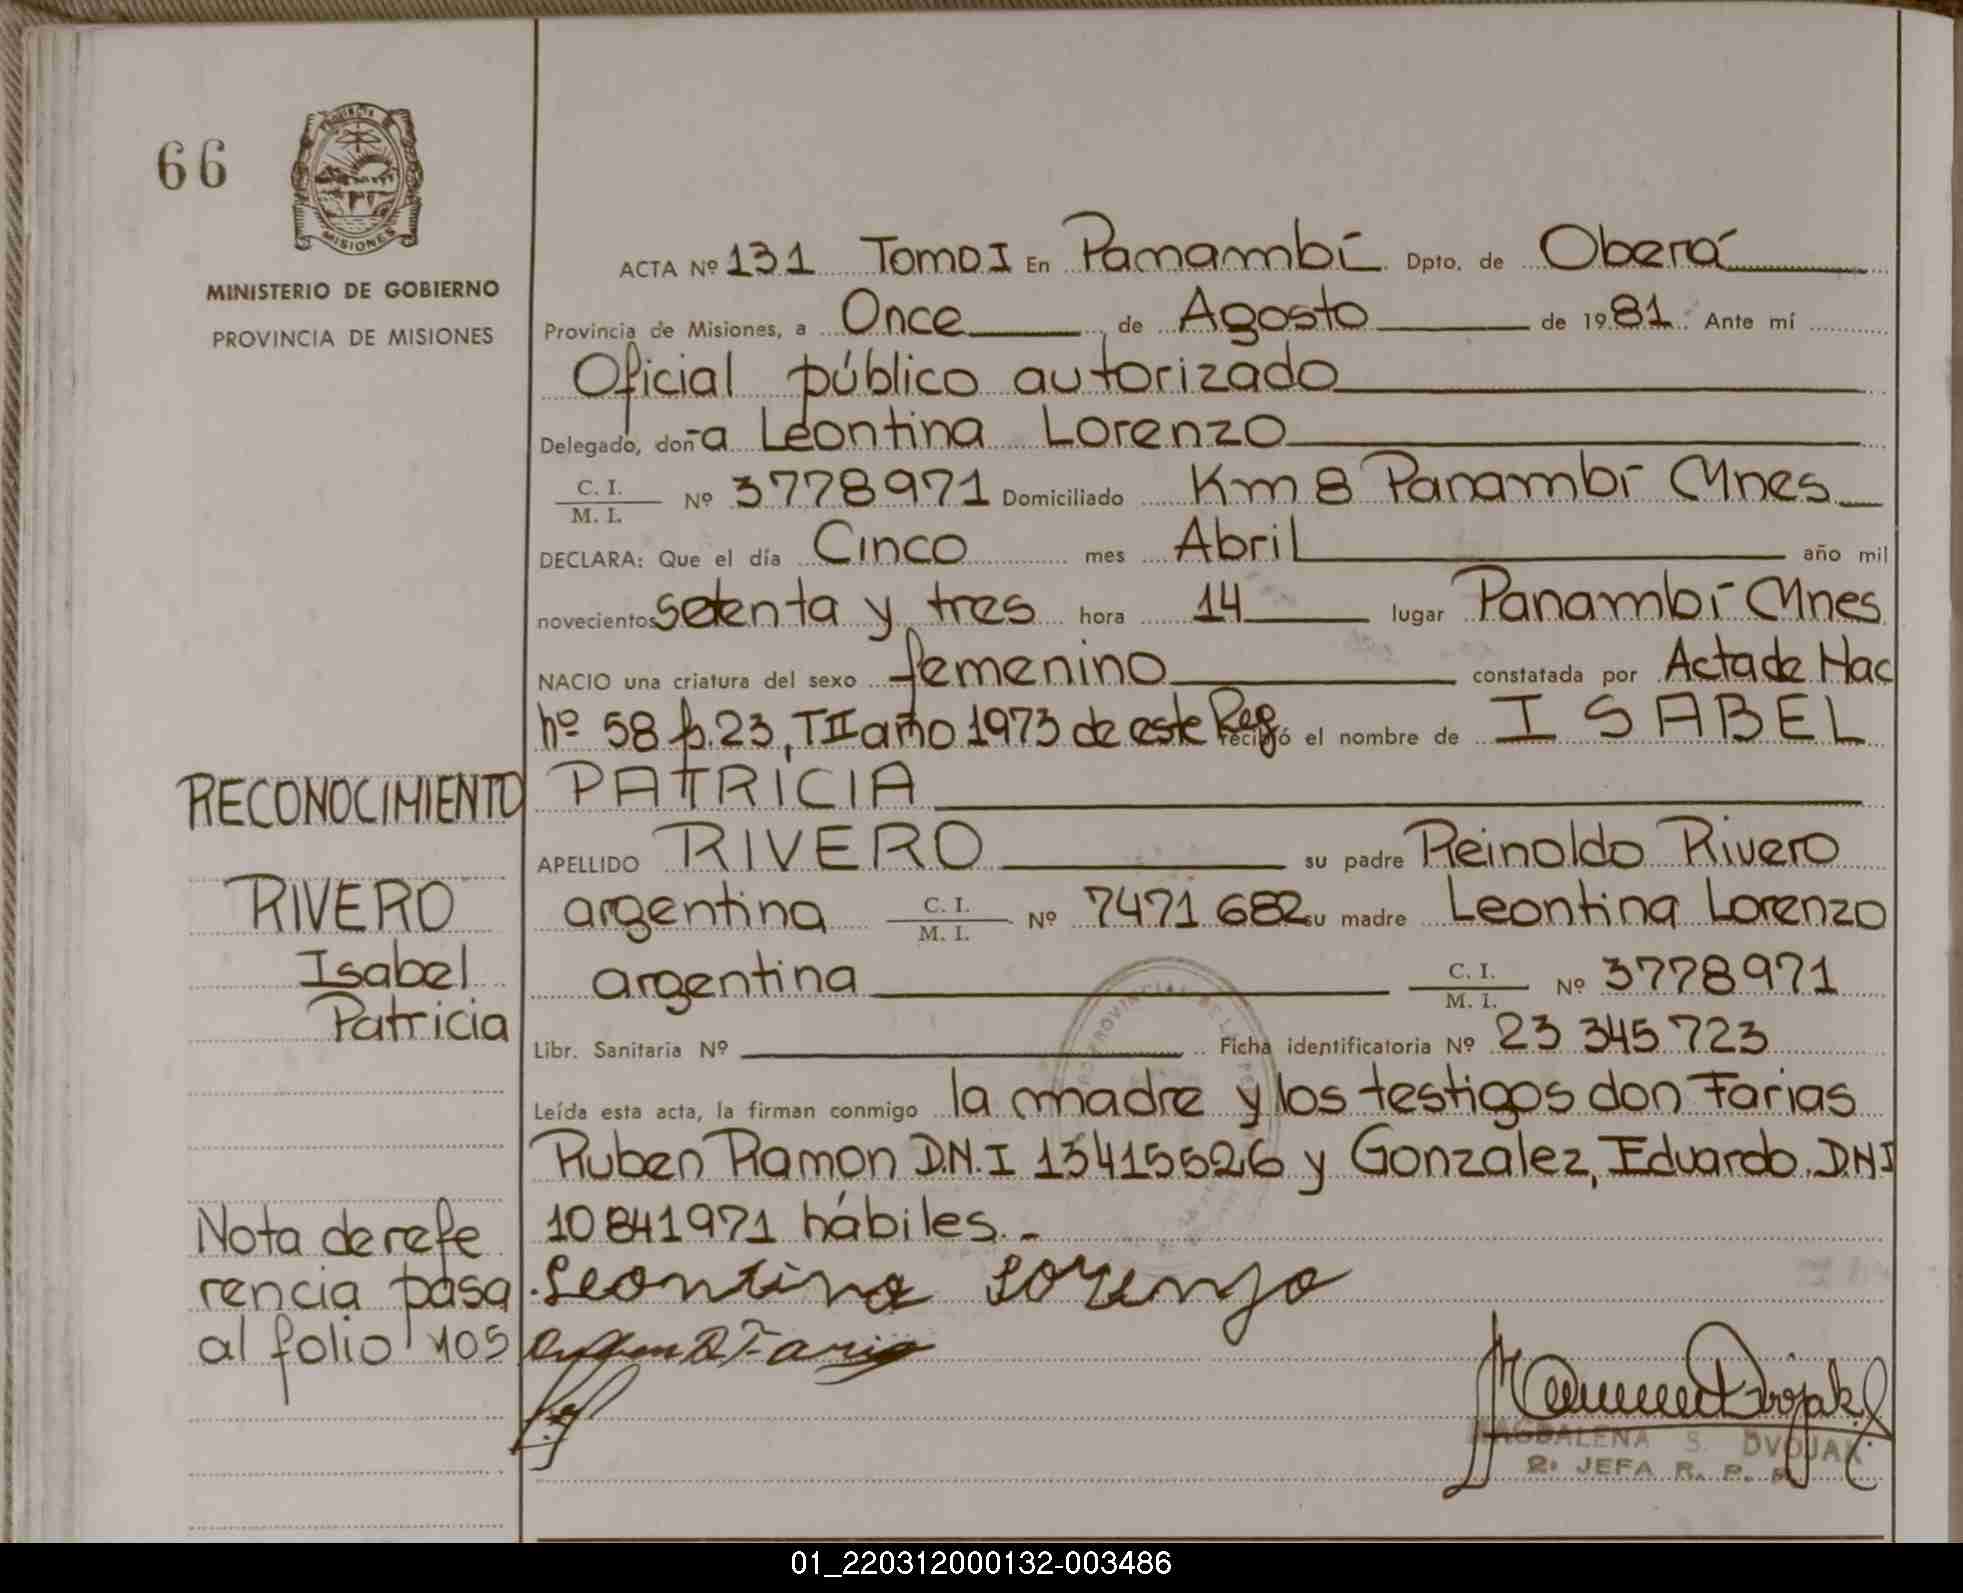 66
PROVINCIA
MISIONES
MINISTERIO DE GOBIERNO
PROVINCIA DE MISIONES
ACTA Nº 131 Tomo I En Panambí Dpto. de Oberá
Provincia de Misiones, a Once de Agosto de 1981 Ante mí
Oficial público autorizado
Delegado, don-a Leontina Lorenzo
C. I.
M. I. Nº 3778971 Domiciliado Km 8 Panambí Mnes
DECLARA: Que el día Cinco mes Abril año mil
novecientos setenta y tres hora 14 lugar Panambí Mnes
NACIO una criatura del sexo femenino constatada por Acta de Nac
nº 58 fº 23, T II año 1973 de este Reg recibió el nombre de ISABEL
PATRICIA
APELLIDO RIVERO su padre Reinoldo Rivero
argentina C. I.
M. I. Nº 7471 682 su madre Leontina Lorenzo
argentina C. I.
M. I. Nº 3778971
Libr. Sanitaria Nº Ficha identificatoria Nº 23 345 723
Leída esta acta, la firman conmigo la madre y los testigos don Farias
Ruben Ramon D.N.I 13415526 y Gonzalez, Eduardo. D.N.I
10841971 hábiles.-
Leontina Lorenzo
RECONOCIMIENTO
RIVERO
Isabel
Patricia
Nota de refe
rencia pasa
al folio 105
MAGDALENA S. DVOJAK
2º JEFA R. P. P.
01_220312000132-003486